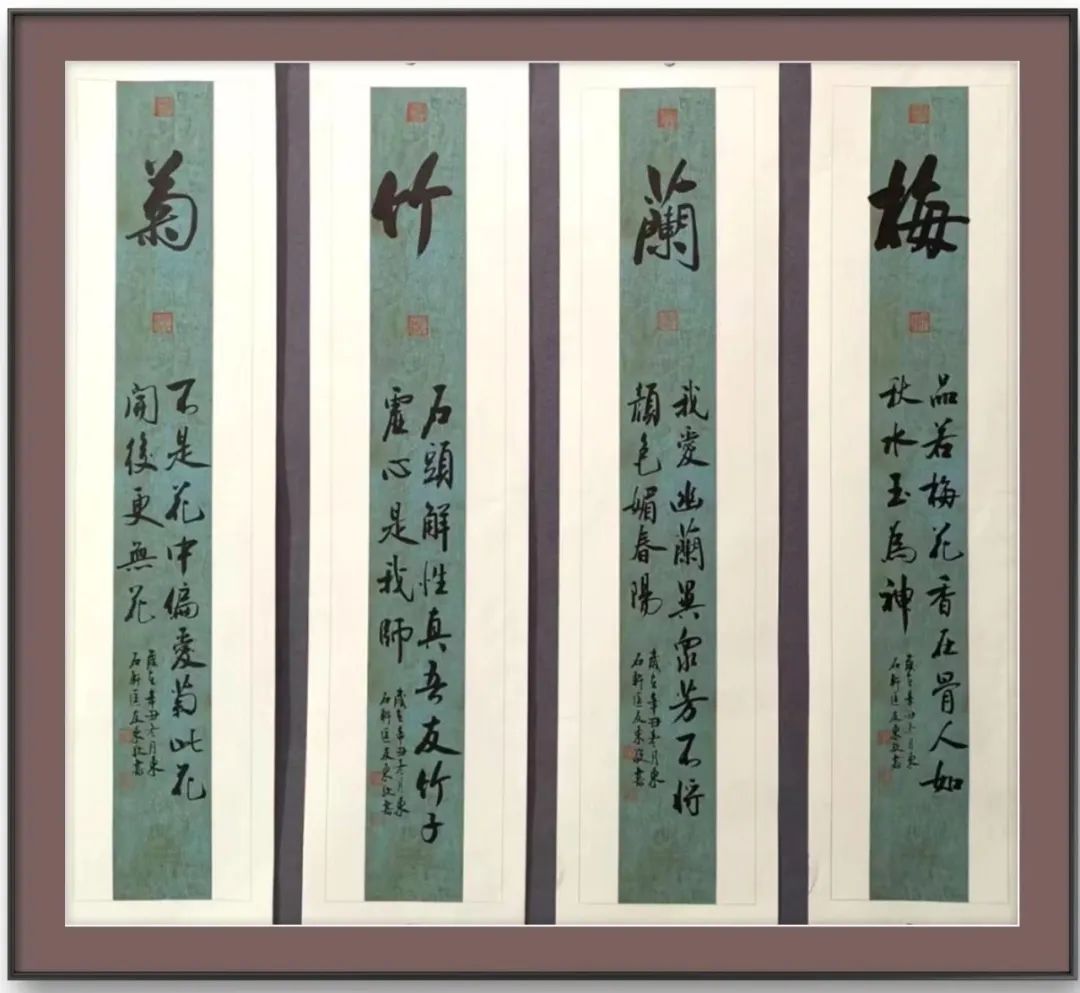 梅
品若梅花香在骨人如
秋水玉為神
歲在辛丑冬月東
石軒匡友東敬書
蘭
我愛幽蘭異衆芳不將
顏色媚春陽
歲在辛丑冬月東
石軒匡友東敬書
竹
石頭解性真吾友竹子
虛心是我師
歲在辛丑冬月東
石軒匡友東敬書
菊
不是花中偏愛菊此花
開後更無花
歲在辛丑冬月東
石軒匡友東敬書